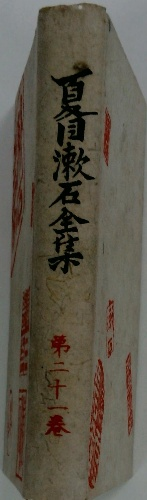 夏目漱石全集
第二十一巻